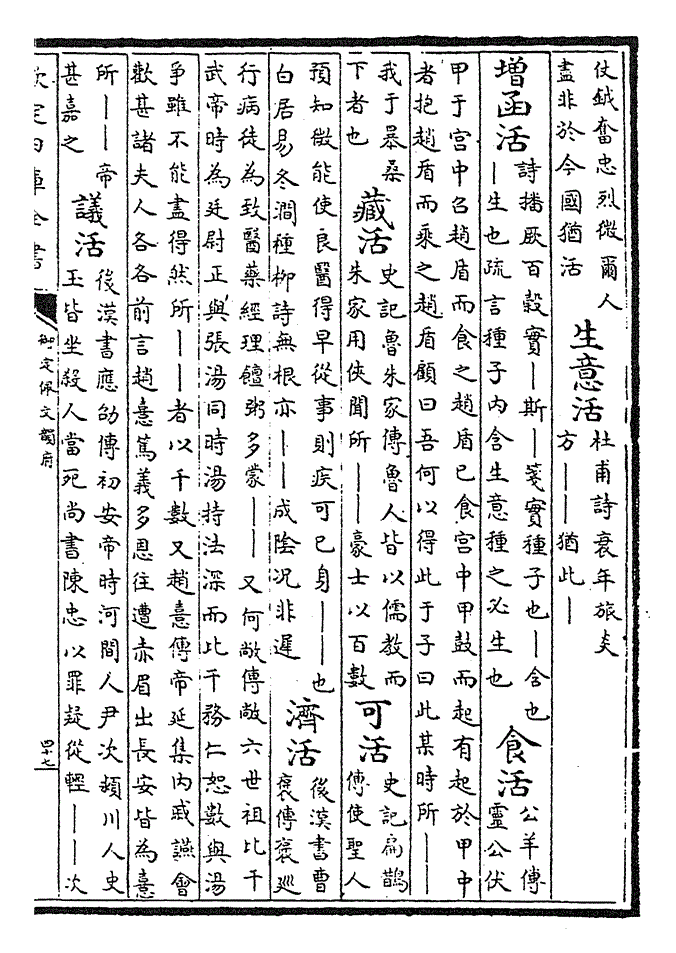 仗鉞奮忠烈微爾人
盡非於今國猶活
生意活
杜甫詩衰年旅炎
方——猶此—
增函活
詩播厥百穀實—斯—箋實種子也—含也
—生也疏言種子內含生意種之必生也
食活
公羊傳
靈公伏
甲于宫中召趙盾而食之趙盾已食宫中甲鼓而起有起於甲中
者抱趙盾而乘之趙盾顧曰吾何以得此于子曰此某時所——
我于暴桑
下者也
藏活
史記魯朱家傳魯人皆以儒教而
朱家用俠聞所——豪士以百數
可活
史記扁鵲
傳使聖人
預知微能使良醫得早從事則疾可已身——也
白居易冬澗種柳詩無根亦——成陰况非遲
濟活
後漢書曹
褒傳褒巡
行病徒為致醫藥經理饘粥多蒙——又何敞傳敞六世祖比干
武帝時為廷尉正與張湯同時湯持法深而比干務仁恕數與湯
爭雖不能盡得然所——者以千數又趙憙傳帝延集內戚讌會
歡甚諸夫人各各前言趙憙篤義多恩往遭赤眉出長安皆為憙
所——帝
甚嘉之
議活
後漢書應劭傳初安帝時河間人尹次潁川人史
玉皆坐殺人當死尚書陳忠以罪疑從輕——次
欽定四庫全書
御定佩文韻府
四十七